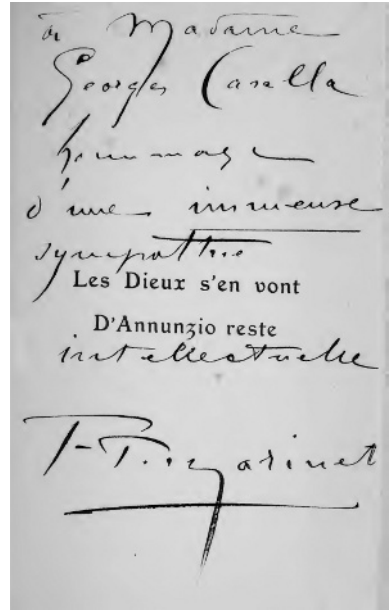 à Madame
Georges Casella
hommage
d'une immense
sympathie
Les Dieux s'en vont
D'Annunzio reste
intellectuelle
F. T. Marinetti